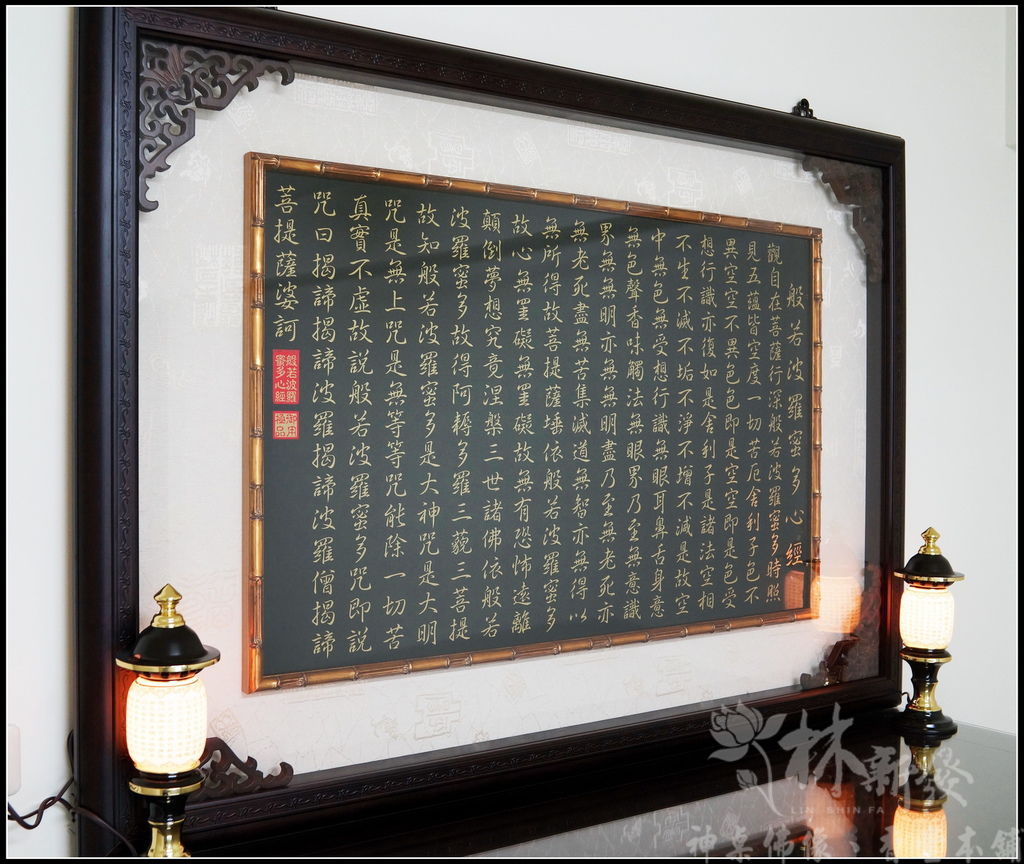 般若波羅蜜多心經
觀自在菩薩行深般若波羅蜜多時照
見五蘊皆空度一切苦厄舍利子色不
異空空不異色色即是空空即是色受
想行識亦復如是舍利子是諸法空相
不生不滅不垢不淨不增不減是故空
中無色無受想行識無眼耳鼻舌身意
無色聲香味觸法無眼界乃至無意識
界無無明亦無無明盡乃至無老死亦
無老死盡無苦集滅道無智亦無得以
無所得故菩提薩埵依般若波羅蜜多
故心無罣礙無罣礙故無有恐怖遠離
顛倒夢想究竟涅槃三世諸佛依般若
波羅蜜多故得阿耨多羅三藐三菩提
故知般若波羅蜜多是大神咒是大明
咒是無上咒是無等等咒能除一切苦
真實不虛故說般若波羅蜜多咒即說
咒曰揭諦揭諦波羅揭諦波羅僧揭諦
菩提薩婆訶
般若波羅
蜜多心經
御用
極品
林新發
LIN SHIN FA
神桌佛像
本鋪